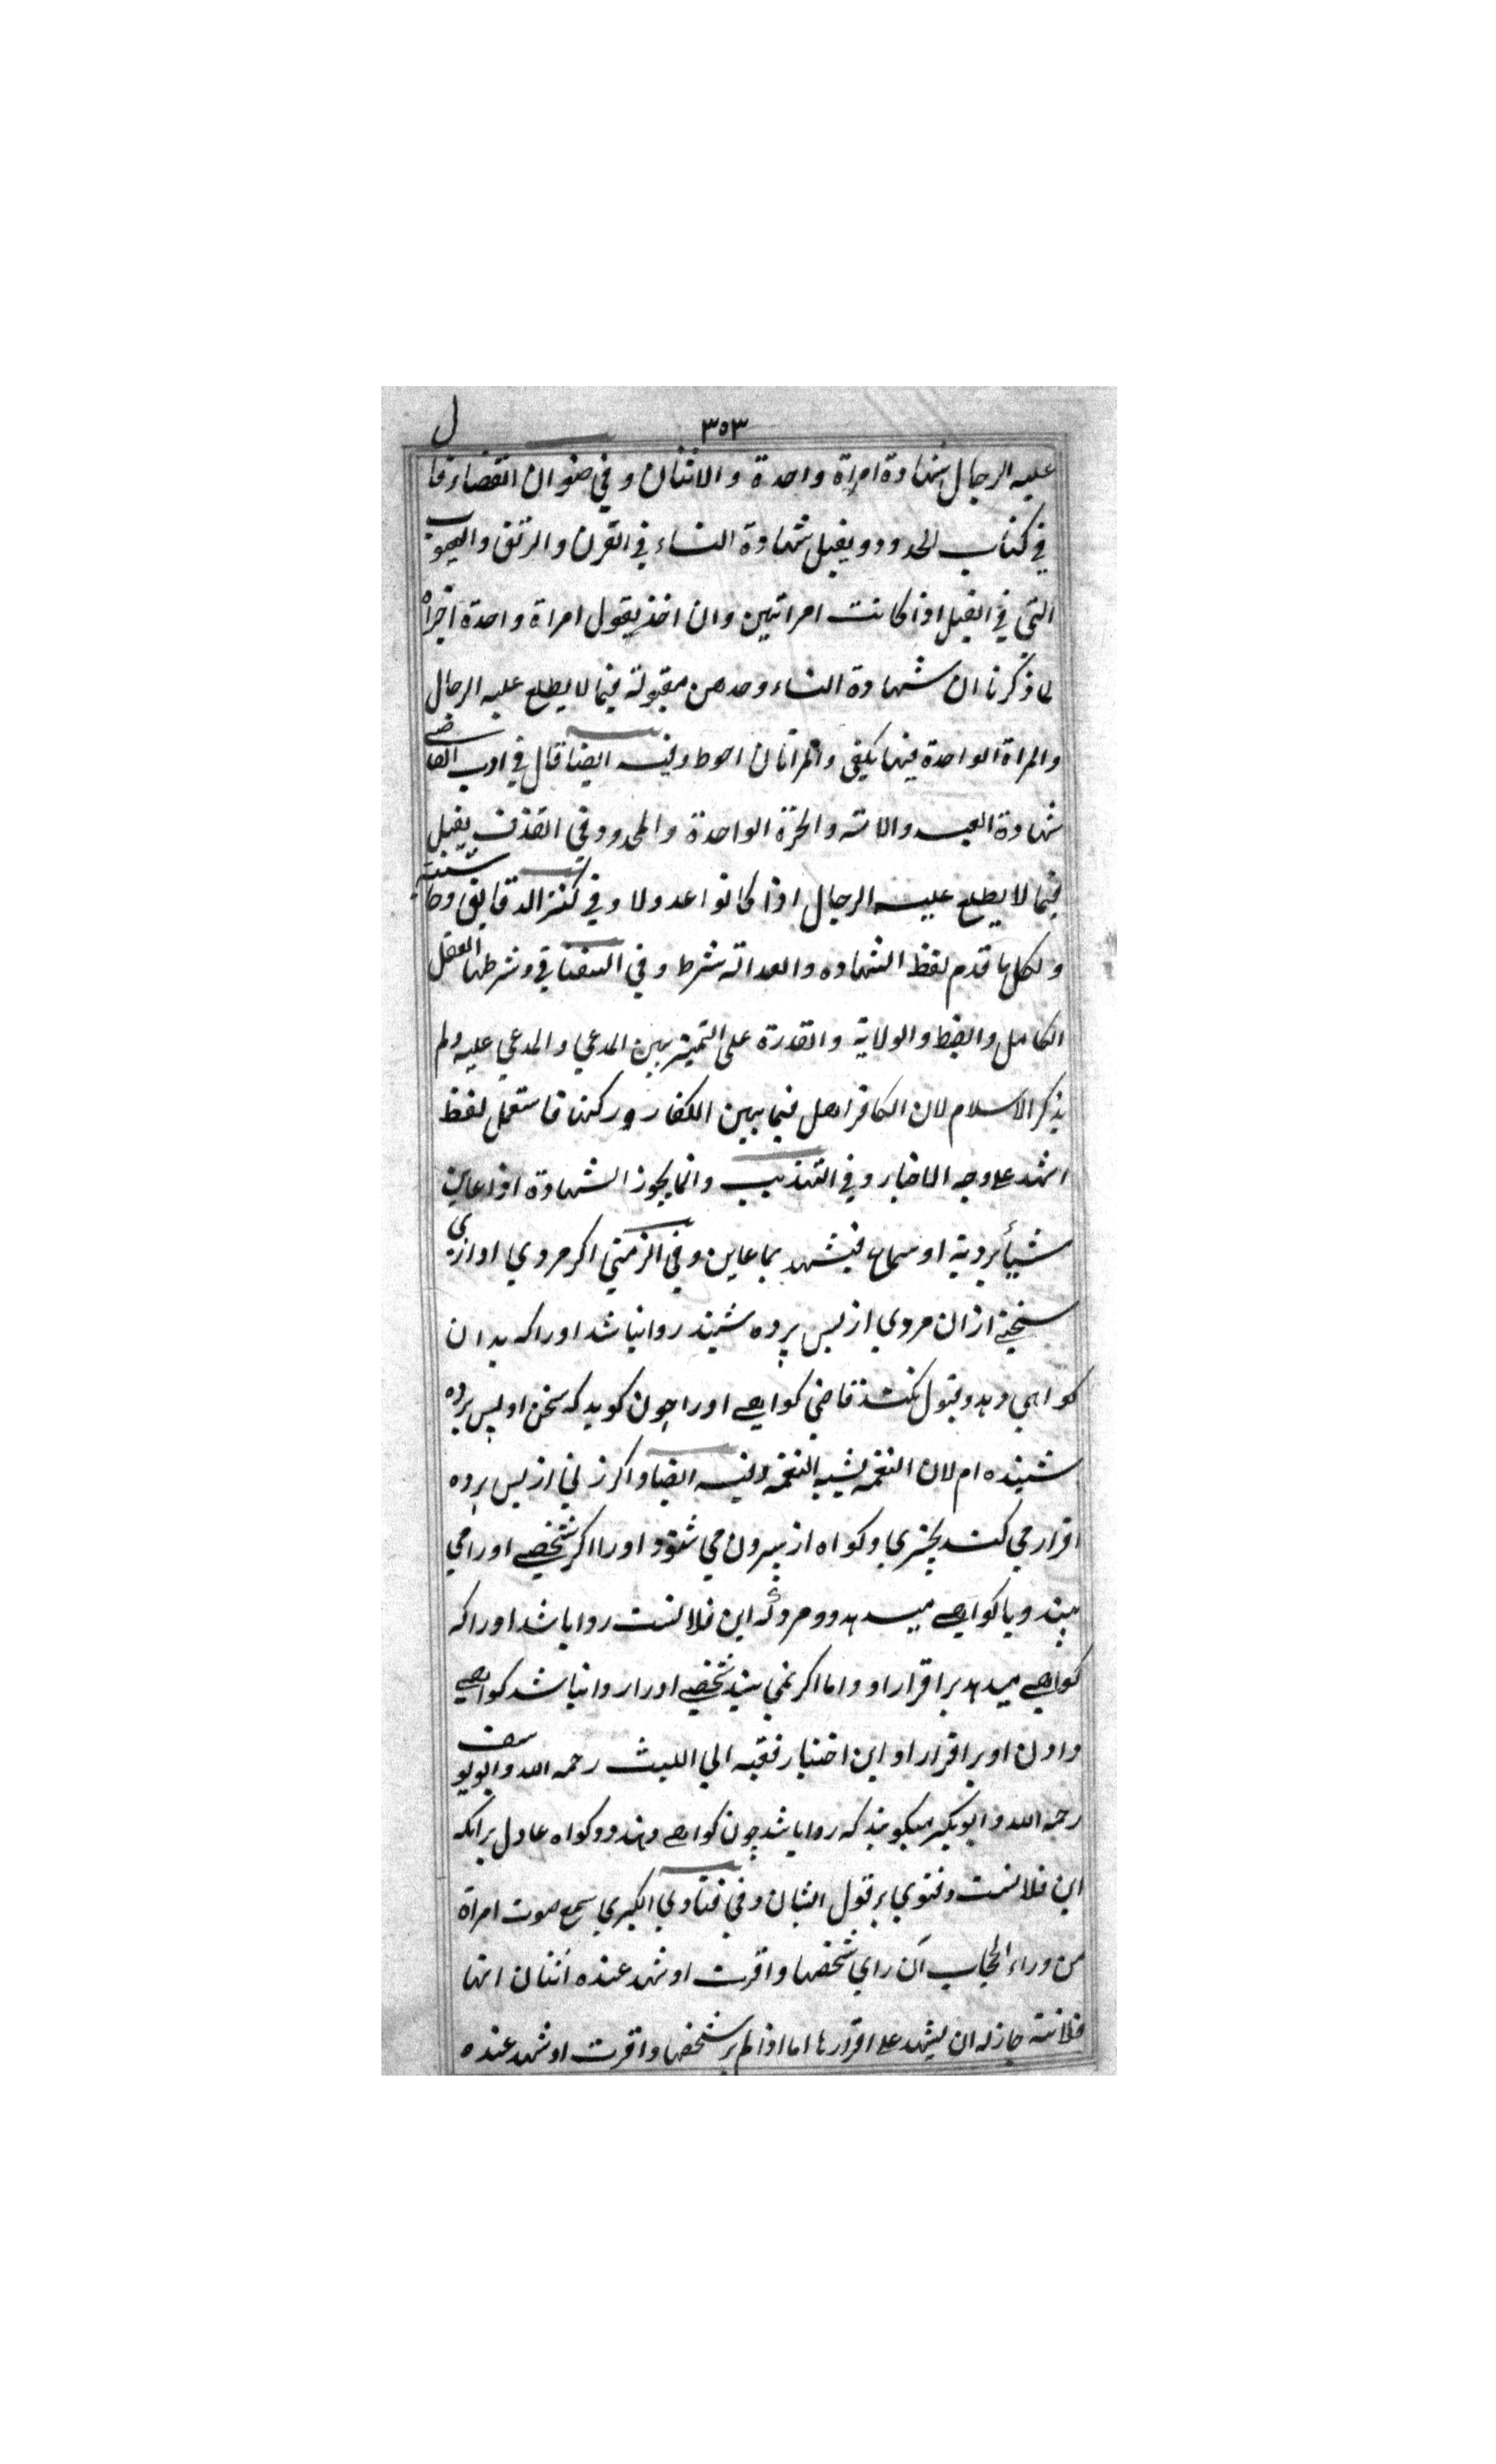 ۳۵۳
ل
عليه الرجال شهادة امراة واحدة والاثنان وفي صنوان القضا وقا
في كتاب الحدود ويقبل شهادة النساء في القرن والرتق والعيوب
التي في القبل اذا كانت امراتين وان اخذ بقول امراة واحدة اجزاه
لما ذكرنا ان شهادة النساء وحدهن مقبولة فيما لا يطلع عليه الرجال
والمراة الواحدة فيها يكفي والمرأتان احوط وفيه ايضا قال في ادب القاضي
شهادة العبد والامة والحرّة الواحدة والمحدود في القذف يقبل
فيما لا يطلع عليه الرجال اذا كانوا عدولا وفي كنز الدقايق وحاشيته
ولكل ما قدم لفظ الشهاده والعدالة شرط وفي السغناقي وشرطها العقل
الكامل والضبط والولاية والقدرة على التميز بين المدعي والمدعي عليه ولم
يذكر الاسلام لان الكافر اهل فيما بين الكفار وركنها فاستعمل لفظ
اشهد علي وجه الاخبار وفي التهذيب وانما يجوز الشهادة اذا عاين
شيأ برويه او سماع فيشهد بما عاين وفي الزمني اكر مردي اوازي
سخني ازان مردي از پس پرده شنيد روانباشد اورا كه بدان
كواهي دهد وقبول نكند قاضي كواهي اورا چون كويد كه سخن او پس پرده
شنيده ام لان النغمه يشبه النغمة وفيه ايضا واكر زني از پس پرده
اقرار مي كند بچيزي وكواه از بيرون مي شنود اورا اكر شخصي اورا مي
بيند ويا كواهي ميدهد دو مرد كه اين فلانست روا باشد اورا كه
كواهي ميدهد بر اقرار او واما اكر نمي بيند شخصي اورا روا نباشد كواهي
دادن او بر اقرار او اين اختيار فقيه ابي الليث رحمه الله وابويوسف
رحمه الله وابوبكر ميكويند كه روا باشد چون كواهي دهند دو كواه عادل برانكه
اين فلانست وفتوي بر قول ايشان وفي فتاوي الكبري سمع صوت امراة
من وراء الحجاب ان راي شخصها واقرت او شهد عنده اثنان انها
فلانة جاز له ان يشهد علي اقرارها اما اذا لم ير شخصها واقرت او شهد عنده